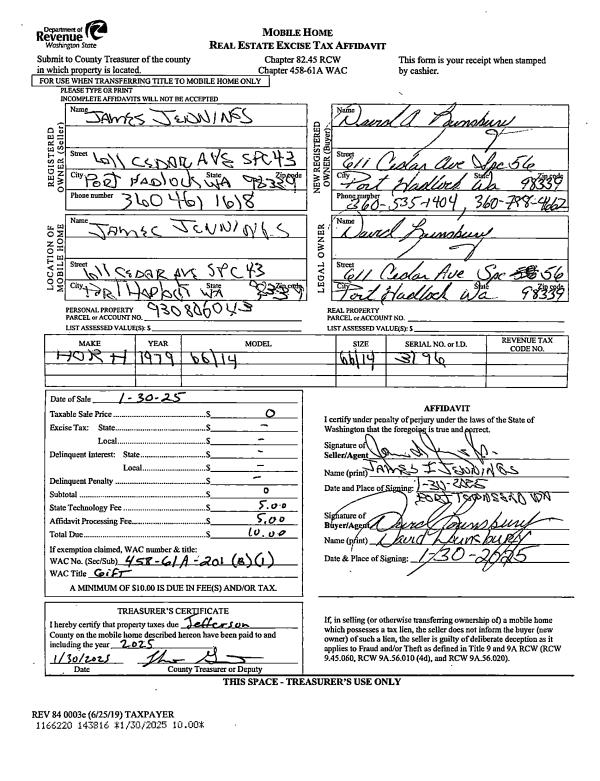 Department of
Revenue
Washington State
MOBILE HOME
REAL ESTATE EXCISE TAX AFFIDAVIT
Submit to County Treasurer of the county
in which property is located.
Chapter 82.45 RCW
Chapter 458-61A WAC
This form is your receipt when stamped
by cashier.
FOR USE WHEN TRANSFERRING TITLE TO MOBILE HOME ONLY
PLEASE TYPE OR PRINT
INCOMPLETE AFFIDAVITS WILL NOT BE ACCEPTED
REGISTERED OWNER (Seller)
Name JAMES JENNINGS
Street 611 CEDAR AVE SPC 43
City PORT HADLOCK State WA Zip code 98339
Phone number 360 461 1618
NEW REGISTERED OWNER (Buyer)
Name David A Lounsbury
Street 611 Cedar Ave Spc 56
City Port Hadlock State Wa Zip code 98339
Phone number 360-535-1404, 360-798-4662
LOCATION OF MOBILE HOME
Name JAMES JENNINGS
Street 611 CEDAR AVE SPC 43
City PORT HADLOCK State WA Zip code
LEGAL OWNER
Name David Lounsbury
Street 611 Cedar Ave Spc 56
City Port Hadlock State Wa Zip code 98339
PERSONAL PROPERTY
PARCEL or ACCOUNT NO. 930806043
LIST ASSESSED VALUE(S): $
REAL PROPERTY
PARCEL or ACCOUNT NO.
LIST ASSESSED VALUE(S): $
MAKE YEAR MODEL SIZE SERIAL NO. or I.D. REVENUE TAX CODE NO.
1979 66/14 66/14 3196
Date of Sale 1-30-25
Taxable Sale Price $ 0
Excise Tax: State $ -
Local $ -
Delinquent Interest: State $ -
Local $ -
Delinquent Penalty $ -
Subtotal $ 0
State Technology Fee $ 5.00
Affidavit Processing Fee $ 5.00
Total Due $ 10.00
If exemption claimed, WAC number & title:
WAC No. (Sec/Sub) 458-61A-201 (B)(1)
WAC Title Gift
A MINIMUM OF $10.00 IS DUE IN FEE(S) AND/OR TAX.
AFFIDAVIT
I certify under penalty of perjury under the laws of the State of
Washington that the foregoing is true and correct.
Signature of
Seller/Agent
Name (print) JAMES I JENNINGS
Date and Place of Signing: 1-30-2025
PORT TOWNSEND WN
Signature of
Buyer/Agent David Lounsbury
Name (print) David Lounsbury
Date & Place of Signing: 1-30-2025
TREASURER'S CERTIFICATE
I hereby certify that property taxes due Jefferson
County on the mobile home described hereon have been paid to and
including the year 2025
1/30/2025
Date County Treasurer or Deputy
If, in selling (or otherwise transferring ownership of) a mobile home
which possesses a tax lien, the seller does not inform the buyer (new
owner) of such a lien, the seller is guilty of deliberate deception as it
applies to Fraud and/or Theft as defined in Title 9 and 9A RCW (RCW
9.45.060, RCW 9A.56.010 (4d), and RCW 9A.56.020).
THIS SPACE - TREASURER'S USE ONLY
REV 84 0003e (6/25/19) TAXPAYER
1166220 143816 *1/30/2025 10.00*